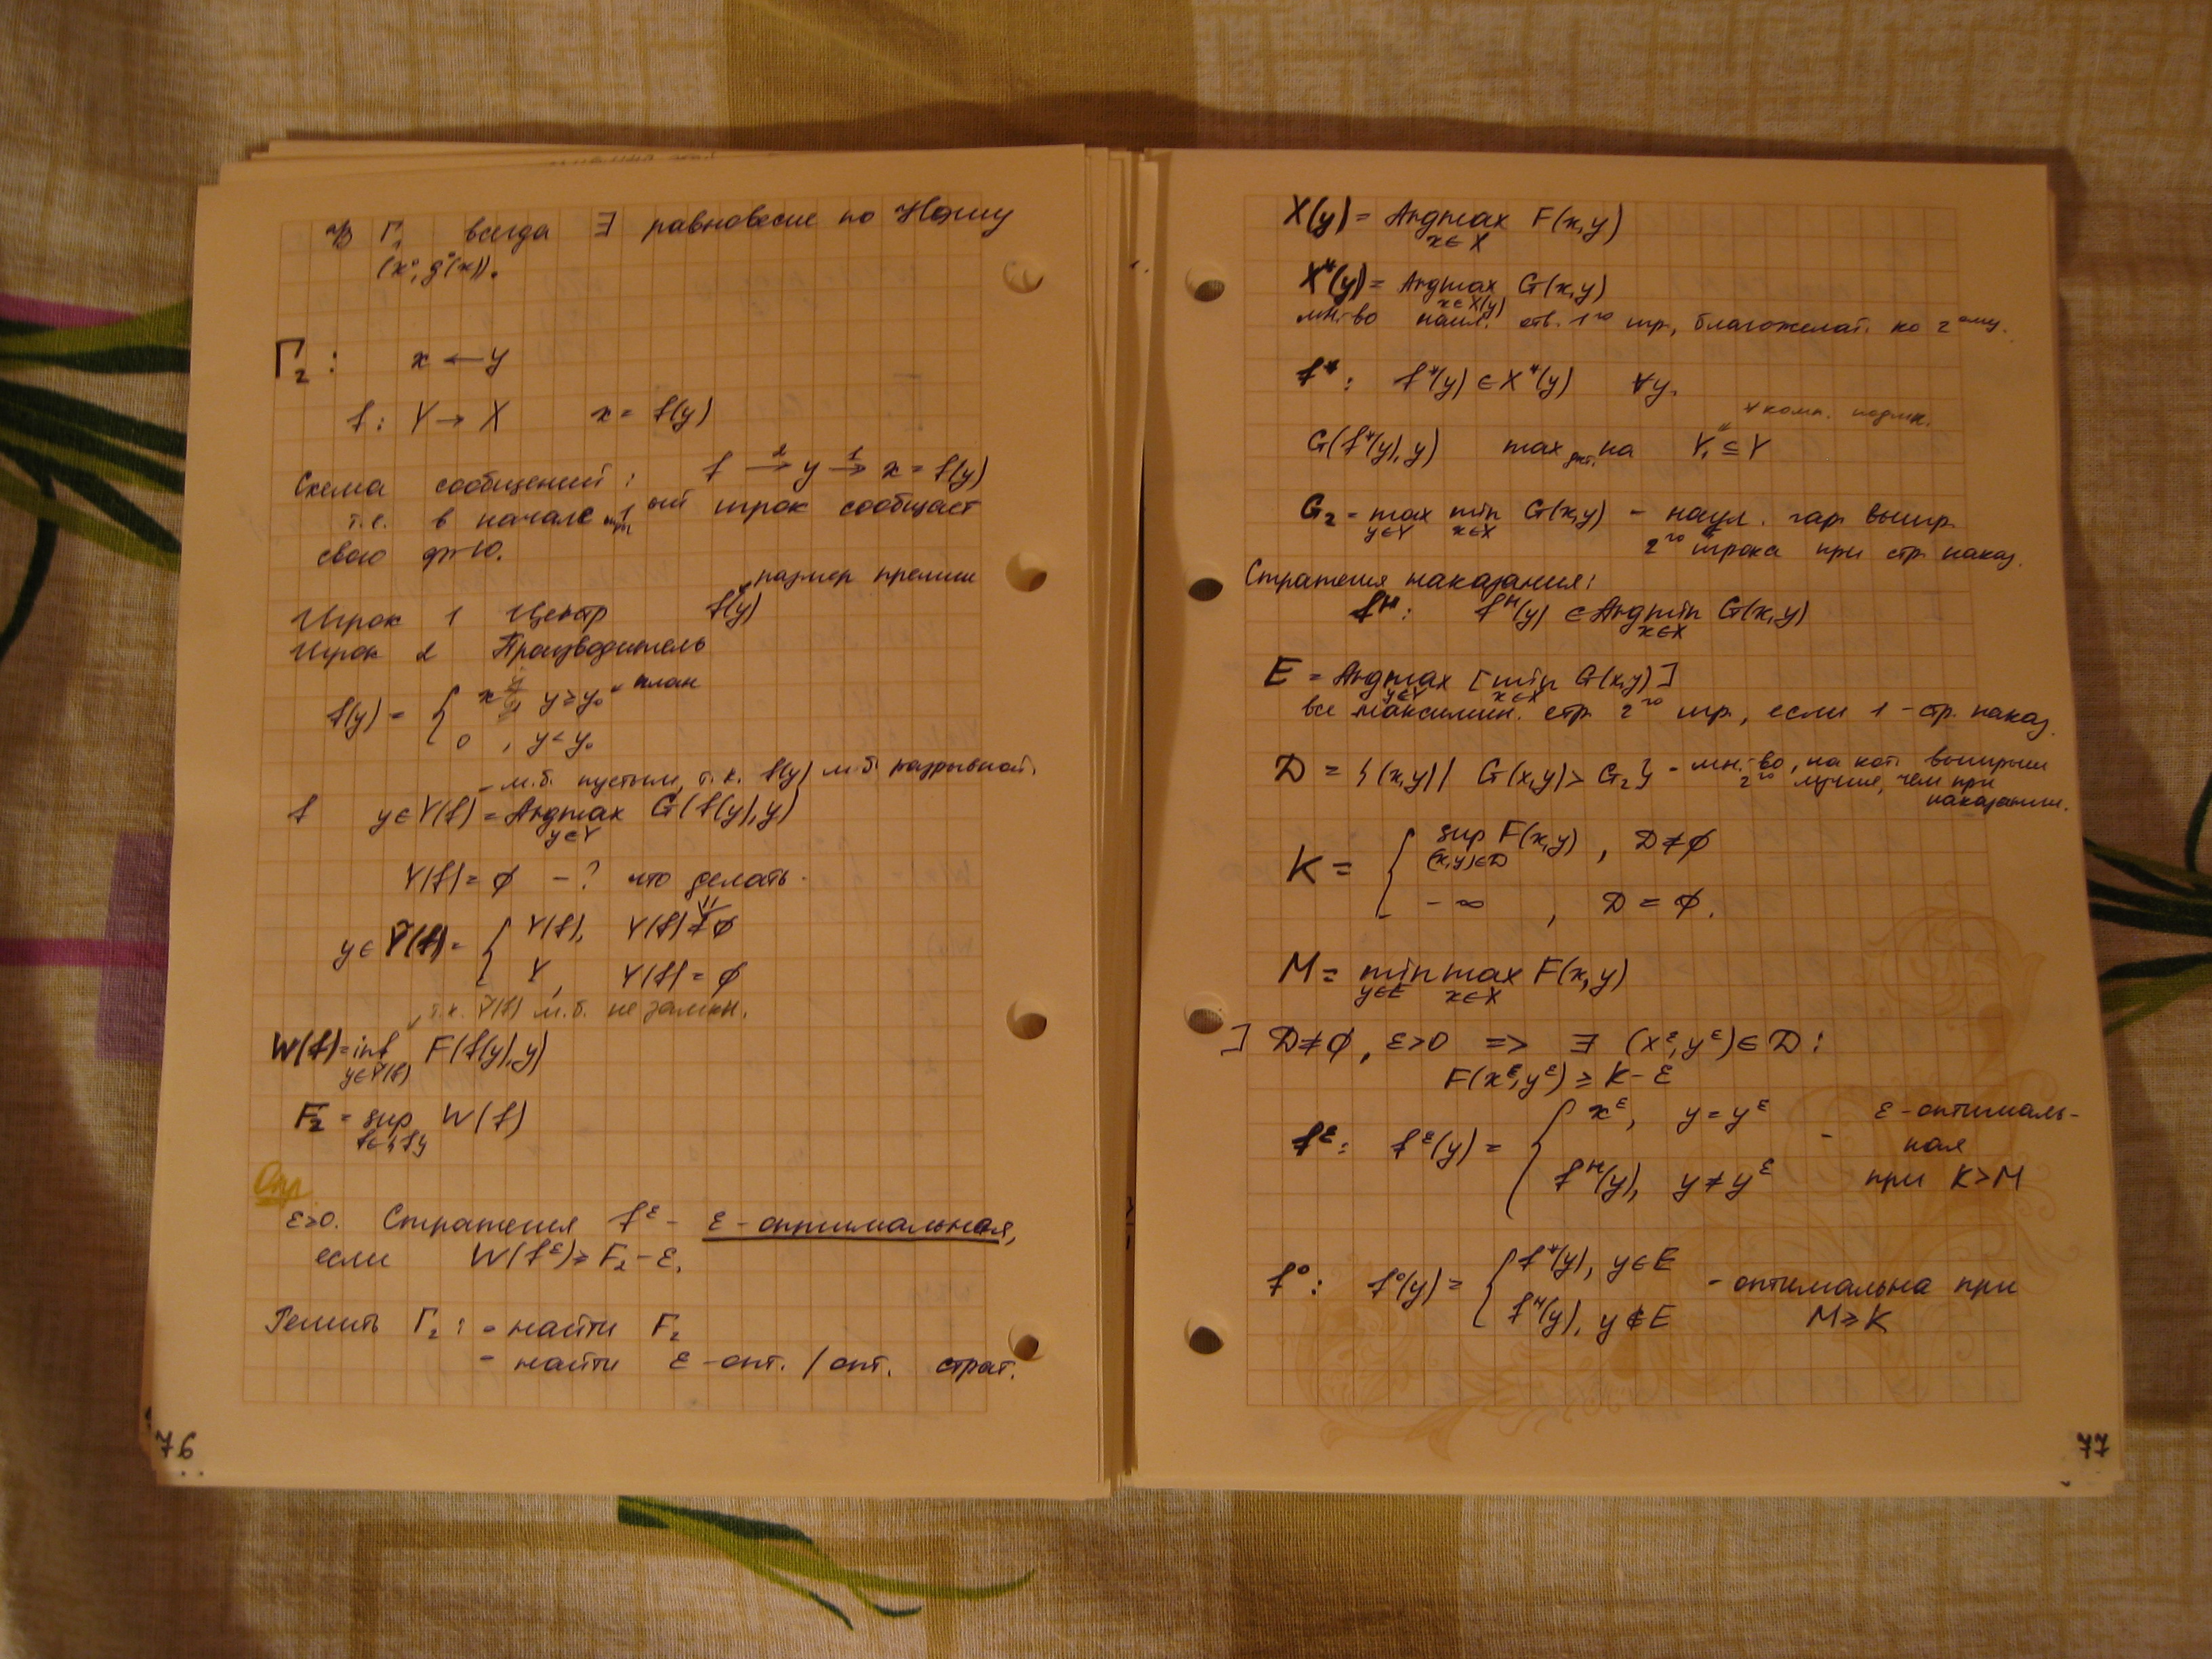 В Г₁ всегда ∃ равновесие по Нэшу
(x⁰, g⁰(x)).
Г₂: x ← y
f: Y → X x = f(y)
Схема сообщений: f →² y →¹ x = f(y)
т.е. в начале 1ый игрок сообщает
свою ф-ю.
размер премии
Игрок 1 Центр f(y)
Игрок 2 Производитель
f(y) = { x, y ≥ y₀ план
0, y < y₀
- м.б. пустым, т.к. f(y) м.б. разрывной.
f y ∈ Y(f) = Argmax G(f(y), y)
y∈Y
Y(f) = ∅ - ? что делать.
y ∈ Ỹ(f) = { Y(f), Y(f) ≠ ∅
Y, Y(f) = ∅
т.к. Ỹ(f) м.б. не замкн.
W(f) = inf F(f(y), y)
y∈Ỹ(f)
F₂ = sup W(f)
f∈{f}
Опр
ε>0. Стратегия f^ε - ε-оптимальная,
если W(f^ε) ≥ F₂ - ε.
Решить Г₂: - найти F₂
- найти ε-опт. / опт. страт.
76
X(y) = Argmax F(x,y)
x∈X
X*(y) = Argmax G(x,y)
x∈X(y)
мн-во наил. отв. 1го игр, благожелат. ко 2ому.
f*: f*(y) ∈ X*(y) ∀y.
∀ комп. подмн.
G(f*(y), y) max дост. на Y₁ ⊆ Y
G₂ = max min G(x,y) - наил. гар. выигр.
y∈Y x∈X
2го игрока при стр. наказ.
Стратегия наказания:
fᴴ: fᴴ(y) ∈ Argmin G(x,y)
x∈X
E = Argmax [min G(x,y)]
y∈Y x∈X
все максимин. стр. 2го игр., если 1 - стр. наказ.
D = {(x,y) | G(x,y) > G₂} - мн-во, на кот. выигрыш
2го лучше, чем при
наказании.
K = { sup F(x,y), D ≠ ∅
(x,y)∈D
-∞, D = ∅.
M = min max F(x,y)
y∈E x∈X
] D ≠ ∅, ε>0 => ∃ (x^ε, y^ε) ∈ D:
F(x^ε, y^ε) ≥ K - ε
f^ε: f^ε(y) = { x^ε, y = y^ε - ε-оптималь-
ная
fᴴ(y), y ≠ y^ε при K > M
f⁰: f⁰(y) = { f*(y), y ∈ E - оптимальна при
fᴴ(y), y ∉ E M ≥ K
77